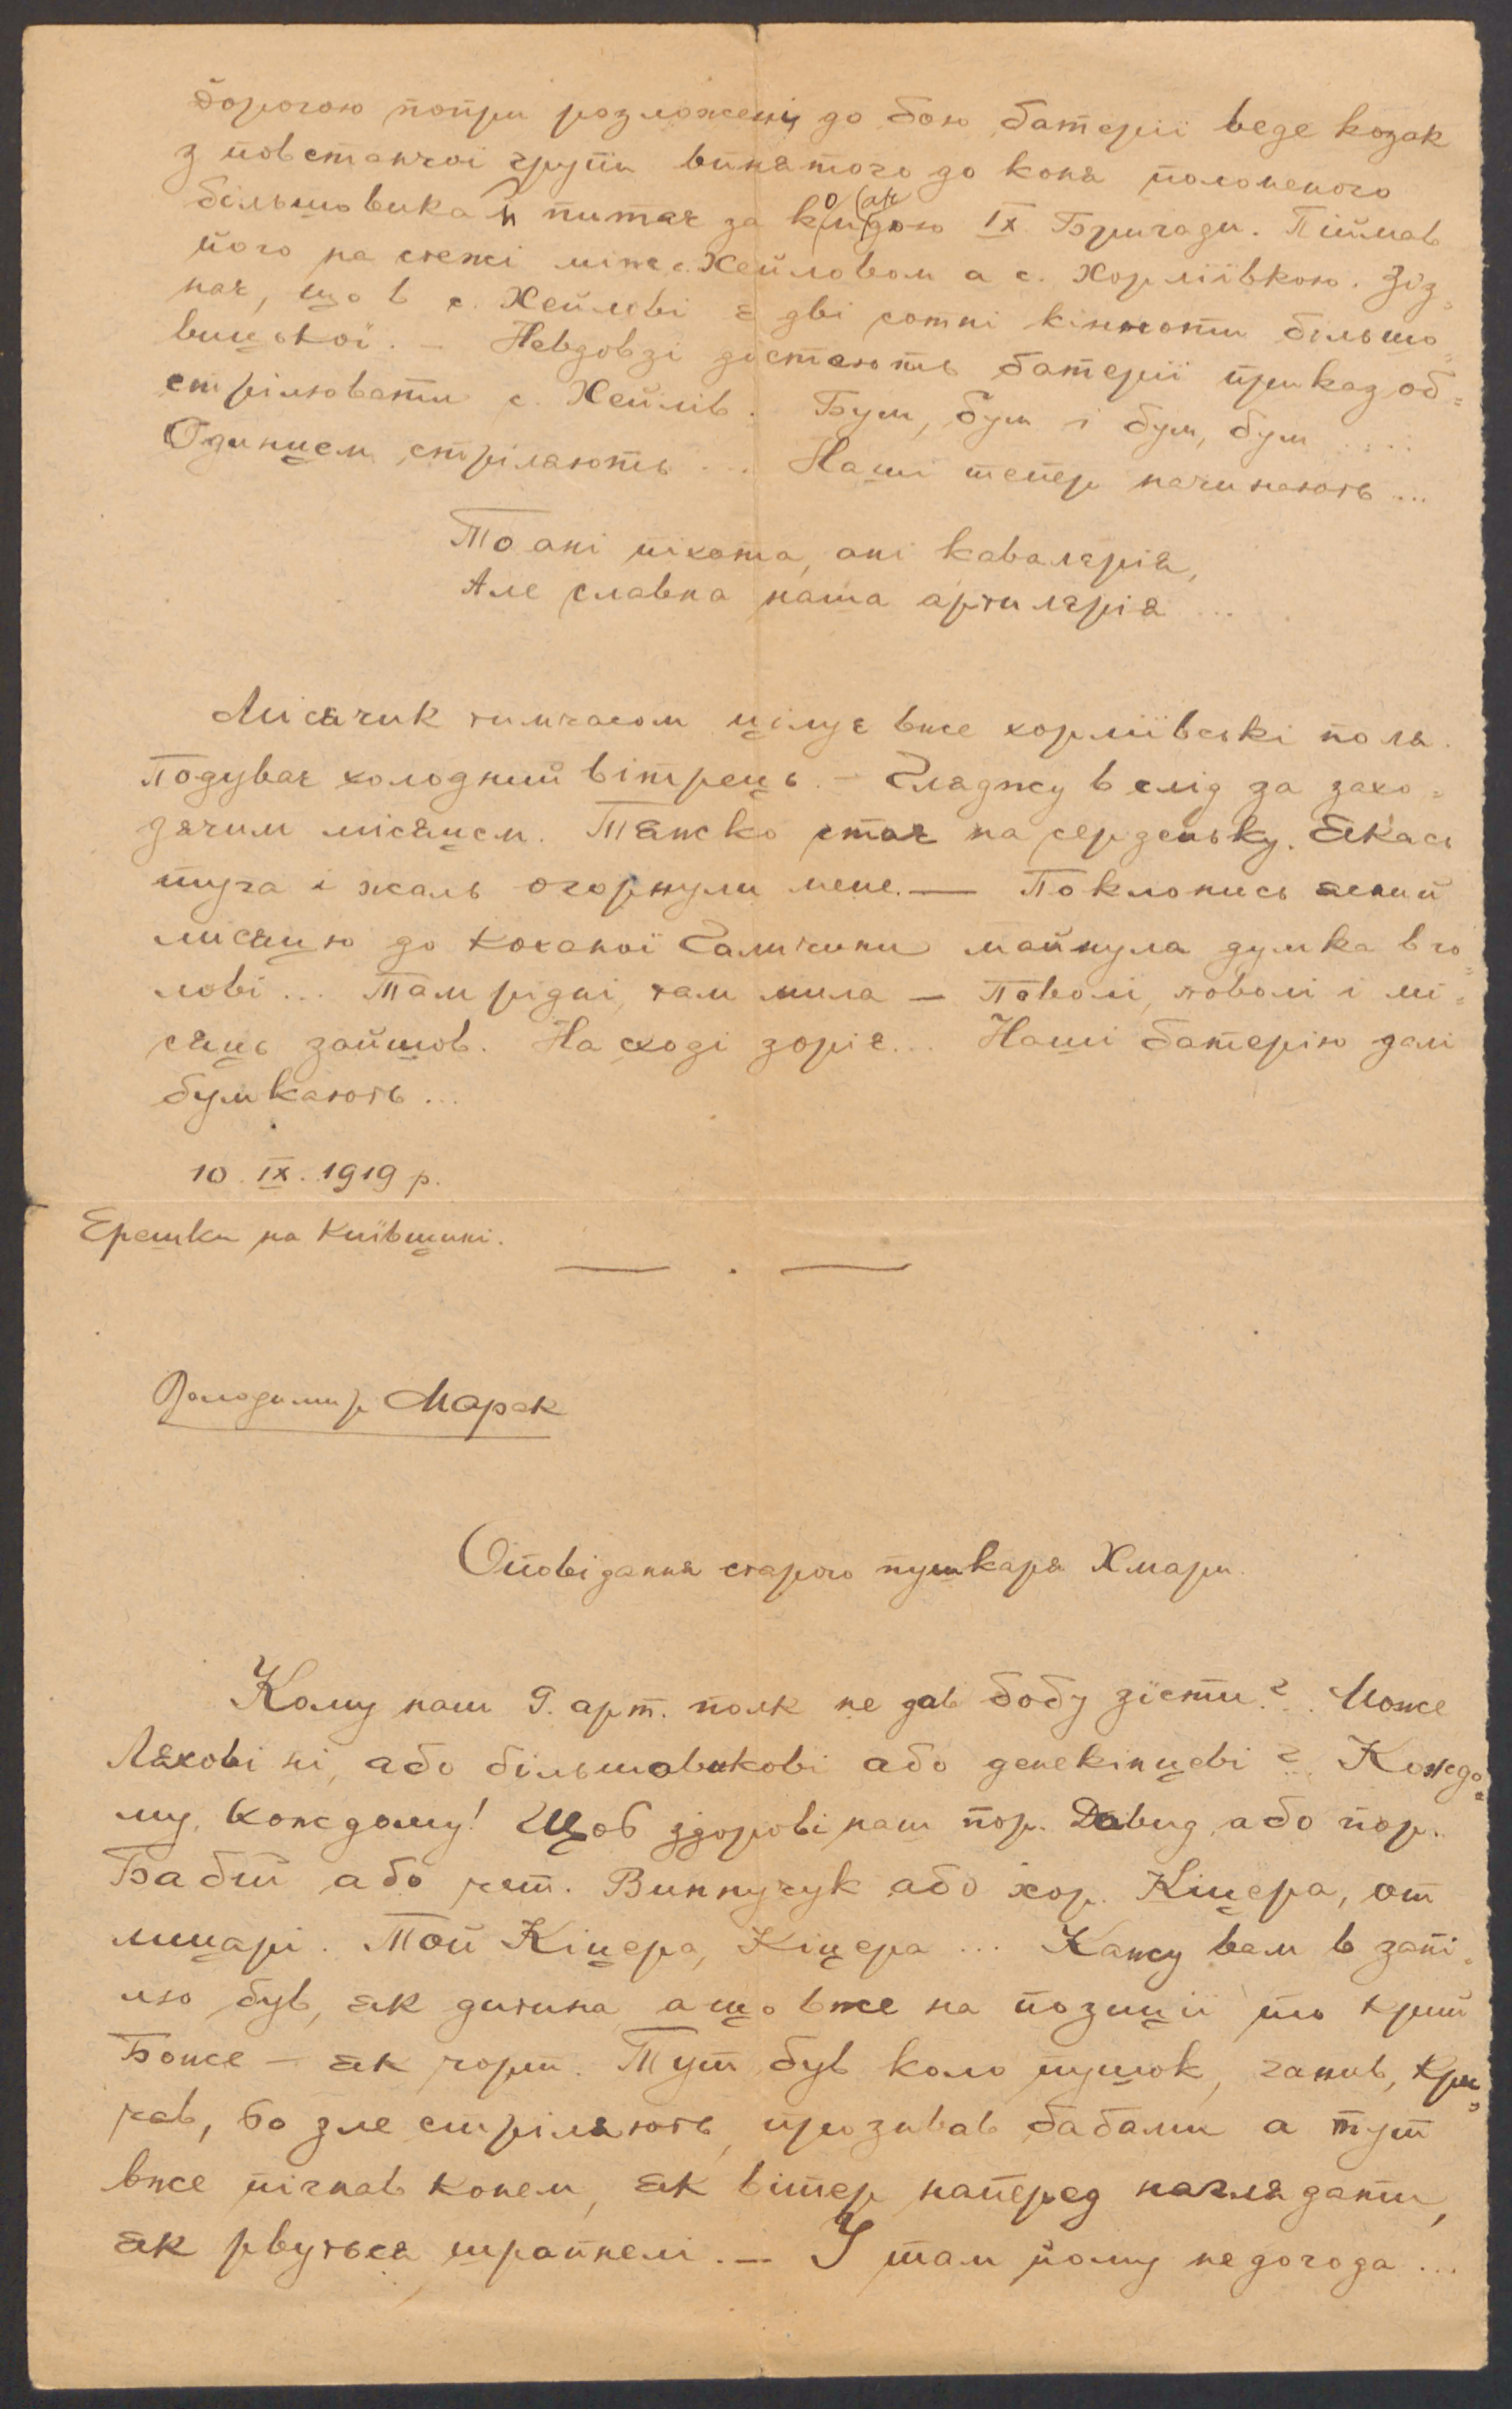 дорогою попри розложені до бою батерії веде козак
з повстанчої групи винятого до коня полоненого
більшовика й питає за командою ІХ. Бригади. Піймав
його на стежі між с. Хейловом а с. Хорліївкою. Зіз=
нає, що в с. Хейлові є дві сотні кінноти більшо=
вицької. — Невдовзі дістають батерії приказ об=
стрілювати с. Хейлів. Бум, бум і бум, бум .....
Одинцем стріляють ... Наші тепер начинають ...
То ані піхота, ані кавалєрія,
Але славна наша артилєрія ...
Місячик тимчасом цілує вже хорліївські поля.
Подуває холодний вітрець. — Гляджу в слід за захо=
дячим місяцем. Тяжко стає на серденьку. Якась
туга і жаль огорнули мене. — Поклонись ясний
місяцю до коханої Галичини майнула думка в го=
лові ... Там рідні, там мила — Поволі, поволі і мі=
сяць зайшов. На сході зоріє... Наші батерію далі
бумкають ...
10. ІХ. 1919 р.
Ерешки на Київщині.
Володимир Марек
Оповідання старого пушкаря Хмари.
Кому наш 9. арт. полк не дав бобу зїсти?.. Може
Ляхові ні, або більшовикові або денекінцеві?.. Кождо=
му, кождому! Щоб здорові наш пор. Давид або пор.
Бабій або чет. Винничук або хор. Кіцера, от
лицарі. Той Кіцера, Кіцера ... Кажу вам в запі=
лю був, як дитина а що вже на позиції то крий
Боже — як чорт. Тут був коло пушок, ганив, кри=
чав, бо зле стріляють, прозивав бабами а тут
вже пігнав конем, як вітер наперед наглядати,
як рвуться шрапнелі. — І там йому недогода ...